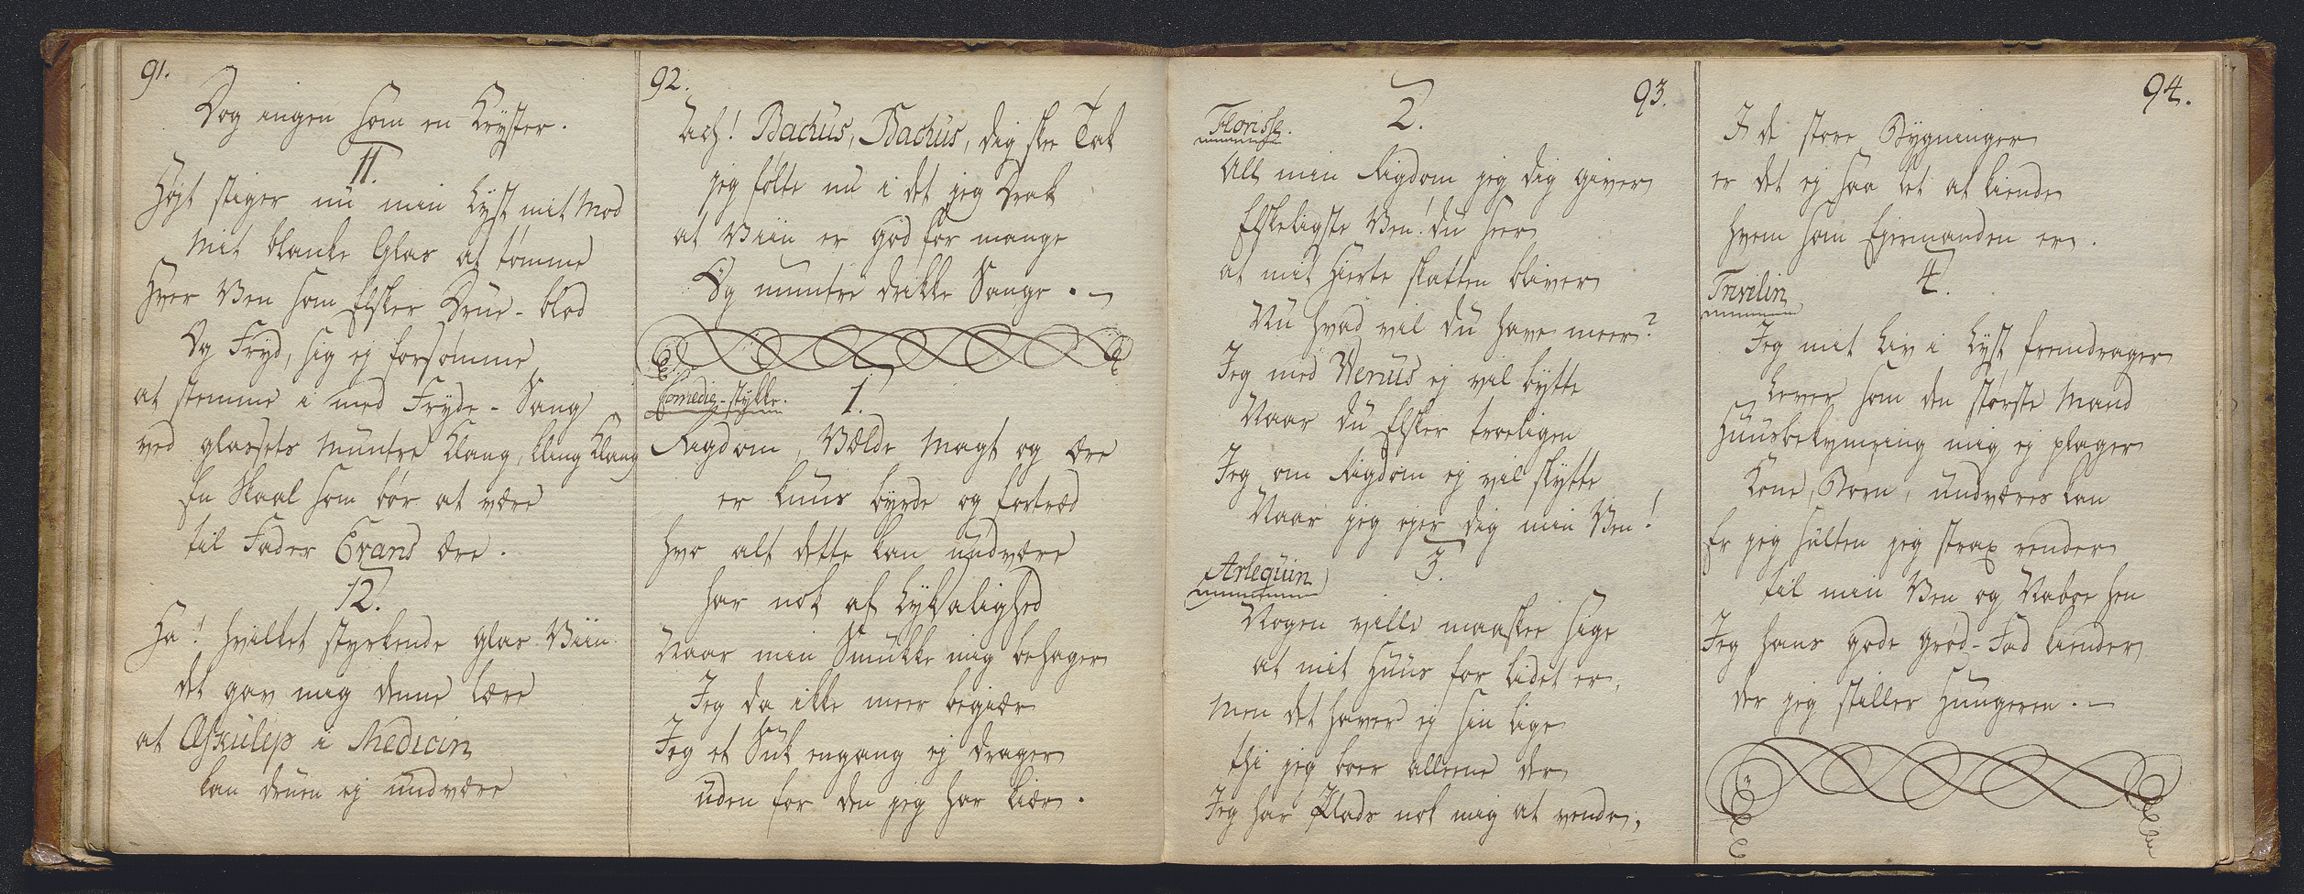 91.
Dog ingen som en Kryster.
11.
Højt stiger nu min Lyst mit Mod
Mit blanke Glas at tømme
Hver Ven som Elsker Drue-blod
Og Fryd, sig ej forsømme
at stemme i med Fryde-Sang
ved glassets Muntre Klang, kling Klang
En Skaal som bør at være
til Fader Evans Ære.
12.
Ha! hvilket styrkende Glas Viin
det gav mig denne lære
at Æskulep i Medicin
kan Druen ej undvære
92.
Ach! Bachus, Bachus, dig skee Tak
jeg følte nu i det jeg Drak
at Viin er god for mange
Og muntre drikke Sange.
Comedie-stykke.
1.
Rigdom, Vælde Magt og Ære
er kuns byrde og fortræd
hvo alt dette kan undvære
har nok af Lyksalighed
Naar min Smukke mig behager
Jeg da ikke meer begiær
Jeg et Suk engang ej drager
uden for den jeg har kiær.
93.
2.
Florisse.
All min Rigdom jeg dig giver
Elskeligste Ven! du seer
at mit Hierte skatten bliver
Nu hvad vil du have meer?
Jeg med Wenus ej vil bytte
Naar du Elsker troeligen
Jeg om Rigdom ej vil skytte
Naar jeg ejer dig min Ven!
3.
Arlequin
Nogen ville maaskee sige
at mit Huus for lidet er,
Men det haver ej sin lige
thi jeg boer alleene der
Jeg har Plads nok mig at vende,
94.
I de store Bygninger
er det ej saa let at kiende
hvem som Ejermanden er.
4.
Trivelin
Jeg mit Liv i Lyst fremdrager
Lever som den største Mand
Huusbekymring mig ej plager
Kone, Børn, undværes kan
Er jeg sulten jeg strax render
til min Ven og Naboe hen
Jeg hans gode grød-Fad kiender
der jeg stiller Hungeren.